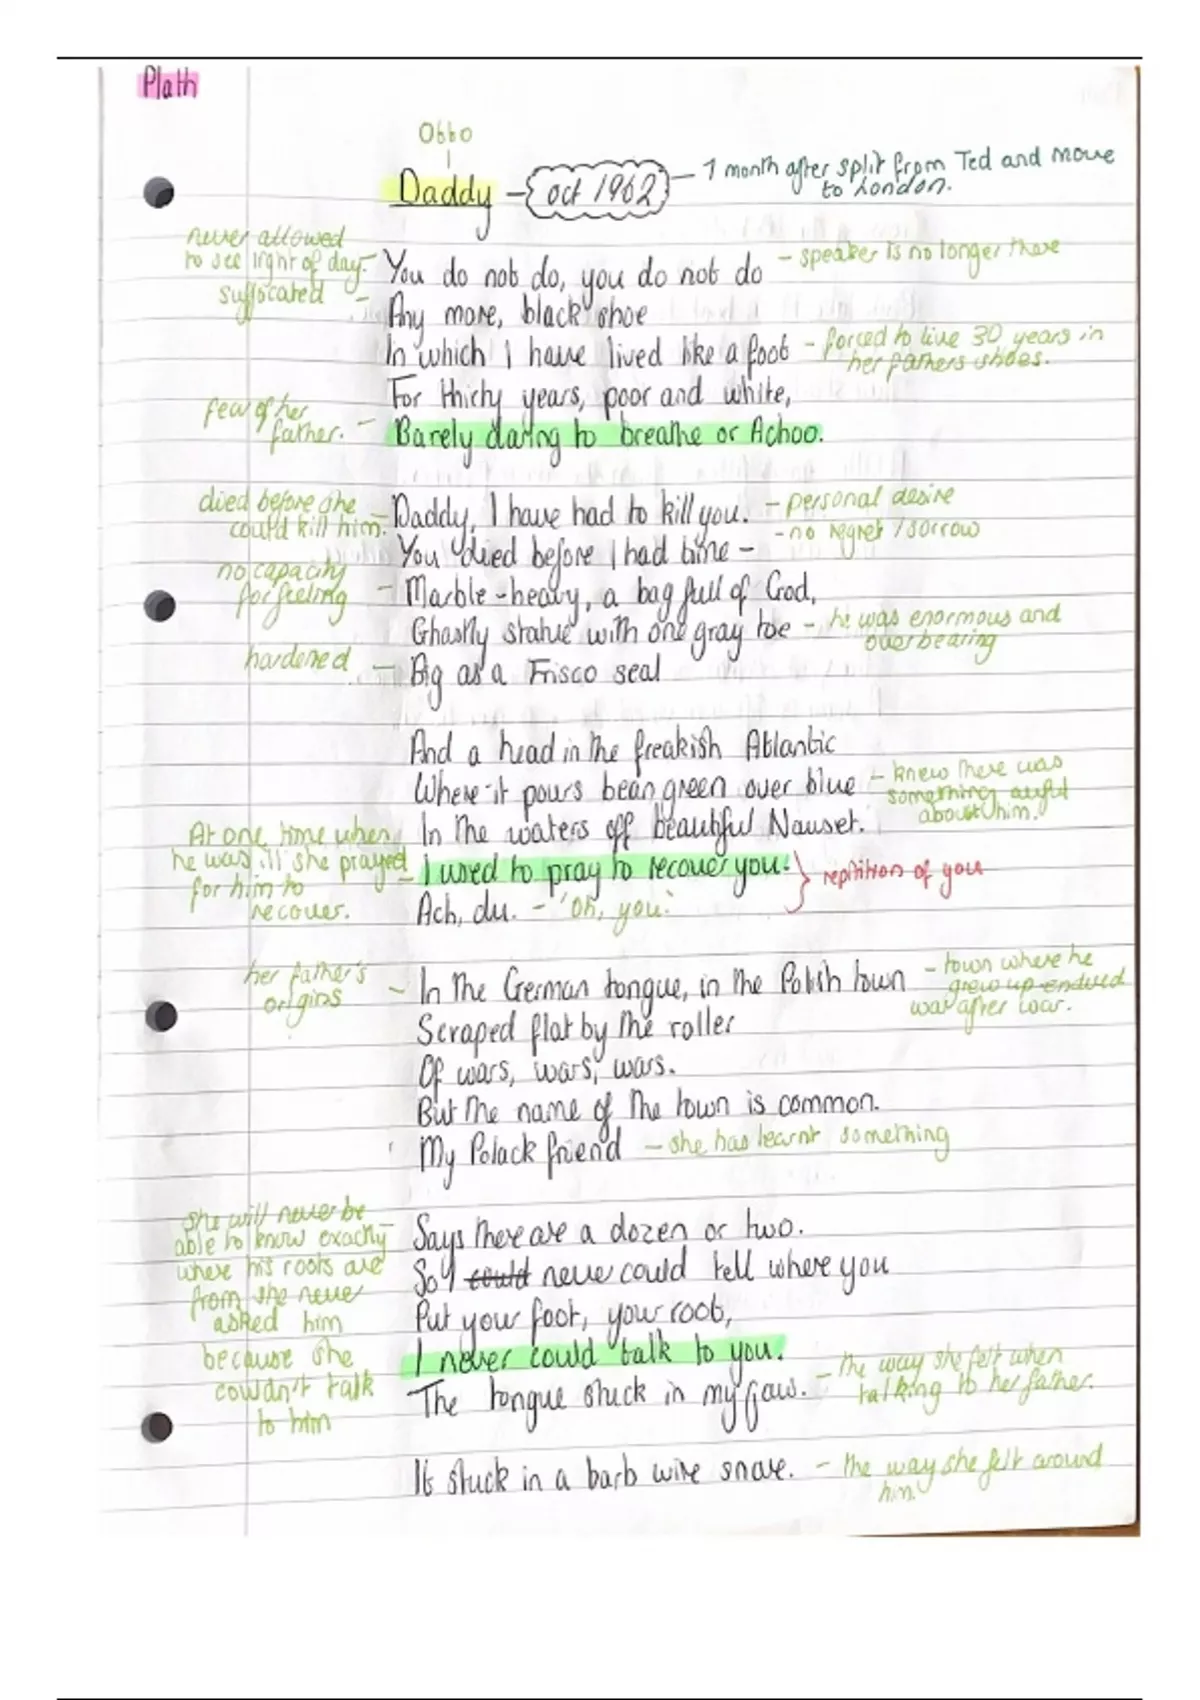 Plath
Otto
Daddy - oct 1962 - 1 month after split from Ted and move
to London.
never allowed
to see light of day.
suffocated
You do not do, you do not do - speaker is no longer there
Any more, black shoe
In which I have lived like a foot - forced to live 30 years in
her fathers shoes.
For thirty years, poor and white,
few of her
father. - Barely daring to breathe or Achoo.
died before she
could kill him.
Daddy, I have had to kill you. - personal desire
- no regret / sorrow
You died before I had time -
no capacity
for feeling - Marble-heavy, a bag full of God,
Ghastly statue with one gray toe - he was enormous and
overbearing
hardened - Big as a Frisco seal
And a head in the freakish Atlantic
Where it pours bean green over blue - knew there was
something awful
about him.
In the waters off beautiful Nauset.
At one time when
he was ill she prayed
for him to
recover.
I used to pray to recover you. } repitition of you
Ach, du. - 'Oh, you.'
her father's
origins - In the German tongue, in the Polish town - town where he
grew up endured
war after war.
Scraped flat by the roller
Of wars, wars, wars.
But the name of the town is common.
My Polack friend - she has learnt something
she will never be
able to know exactly
where his roots are
from she never
asked him
because she
couldn't talk
to him
Says there are a dozen or two.
So I could never could tell where you
Put your foot, your root,
I never could talk to you.
The tongue stuck in my jaw. - the way she felt when
talking to her father.
It stuck in a barb wire snare. - the way she felt around
him.